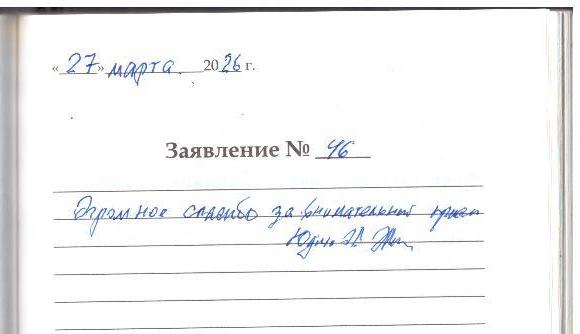 «27» марта 2026 г.
Заявление № 46
Огромное спасибо за внимательный прием